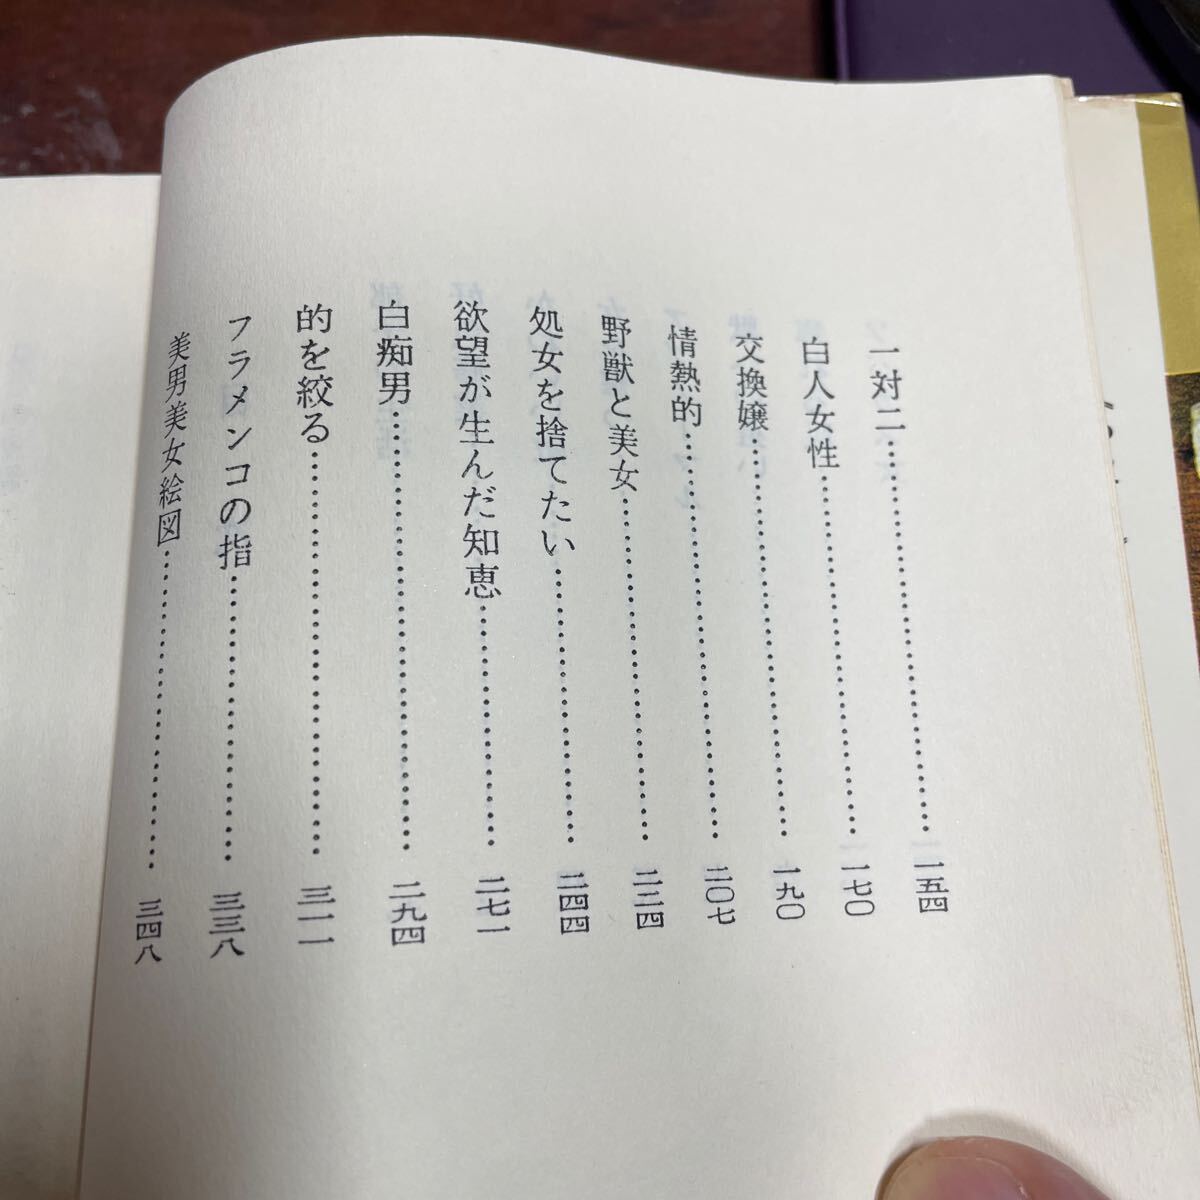 一対二……………………一五四
白人女性……………………一七〇
交換嬢……………………一九〇
情熱的……………………二〇七
野獣と美女……………………二二四
処女を捨てたい……………………二四四
欲望が生んだ知恵……………………二七一
白痴男……………………二九四
的を絞る……………………三一一
フラメンコの指……………………三三八
美男美女絵図……………………三四八